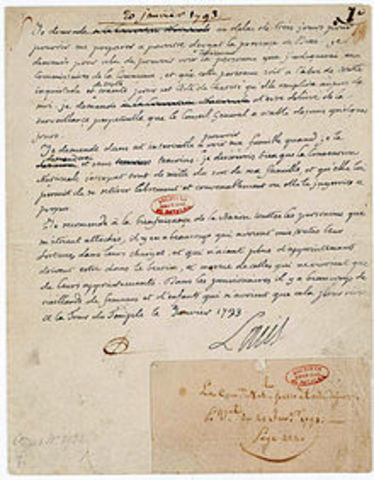 20 janvier 1793
Je demande un délai de trois jours pour
pouvoir me préparer à paroitre devant la présence de Dieu, je
demande pour cela de pouvoir voir la personne que j'indiquerai aux
Commissaires de la Commune, et que cette personne soit à l'abri de toute
inquiétude et crainte pour cet acte de charité qu'elle remplira auprès de
moi. Je demande d'être délivré de la
surveillance perpétuelle que le Conseil Général a établie depuis quelques
jours.
Je demande dans cet intervalle à pouvoir voir ma famille quand je le
demanderai et sans témoins, je désirerois bien que la Convention
Nationale s'occupat tout de suite du sort de ma famille, et qu'elle lui
permit de se retirer librement et convenablement où elle le jugeroit à
propos.
Je recommande à la bienfaisance de la Nation toutes les personnes qui
m'étoient attachées, il y en a beaucoup qui avoient mis toutes leur
fortune dans leurs charges, et qui n'aiant plus d'appointements
doivent estre dans le besoin, et mesme de celles qui ne vivoient que
de leurs appointements. Dans les pensionnaires il y a beaucoup de
vieillards de femmes et d'enfants qui n'avoient que cela pour vivre
à la Tour du Temple le 20 Janvier 1793
Louis